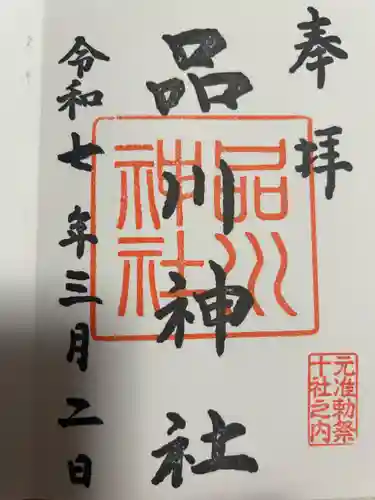 奉拝
品川神社
品川神社
元准勅祭
十社之内
令和七年三月二日